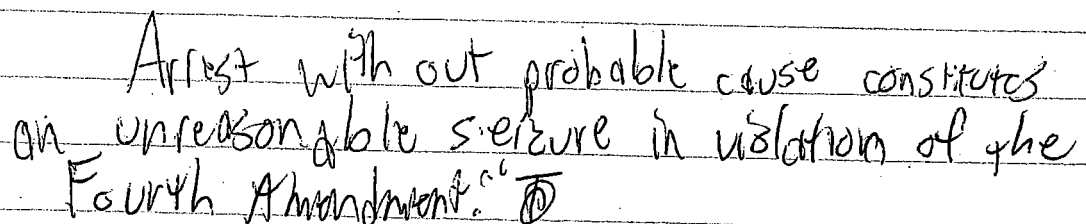 Arrest with out probable cause constitutes
an unreasonable seizure in violation of the
Fourth Amendment."